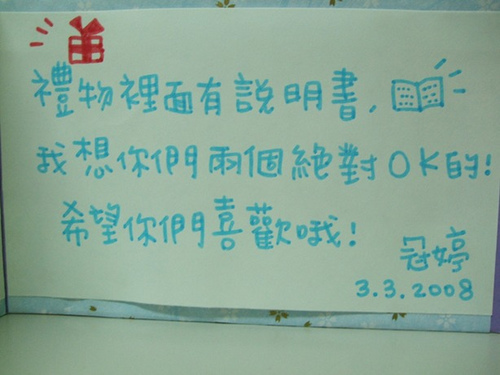 禮物裡面有說明書,
我想你們兩個絕對OK的!
希望你們喜歡哦!
冠婷
3.3.2008